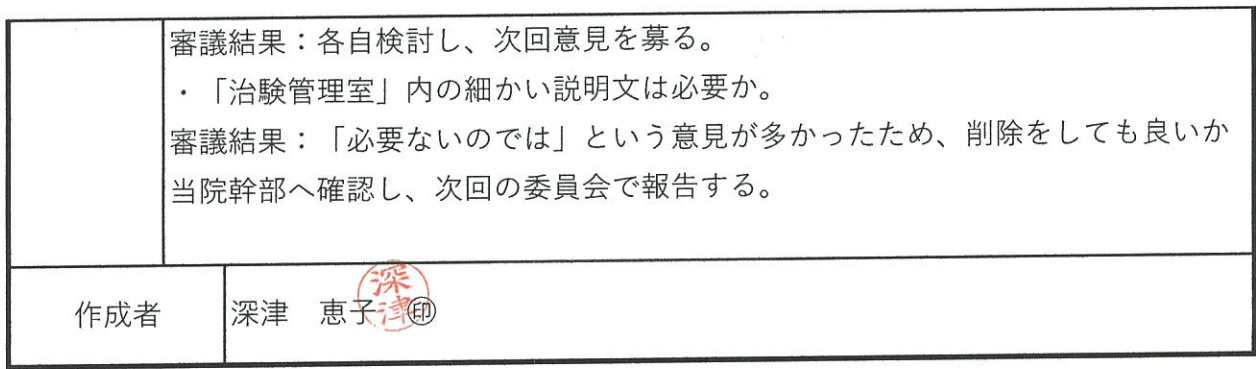 審議結果：各自検討し、次回意見を募る。
・「治験管理室」内の細かい説明文は必要か。
審議結果：「必要ないのでは」という意見が多かったため、削除をしても良いか
当院幹部へ確認し、次回の委員会で報告する。
作成者
深津　恵子 ㊞
深津